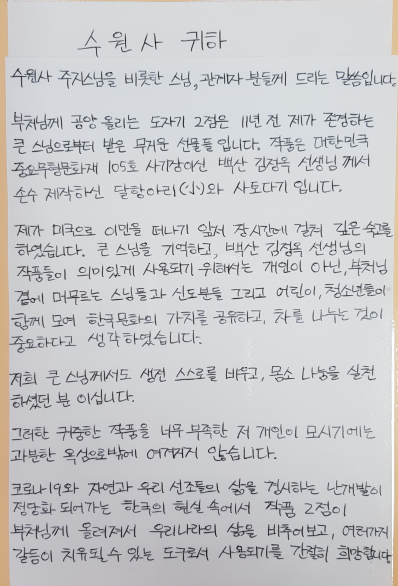 수원사 귀하
수원사 주지스님을 비롯한 스님, 관계자 분들께 드리는 말씀입니다
부처님께 공양 올리는 도자기 2점은 11년 전 제가 존경하는
큰 스님으로부터 받은 무거운 선물들 입니다. 작품은 대한민국
중요무형문화재 105호 사기장이신 백산 김정옥 선생님께서
손수 제작하신 달항아리(小)와 사토다기 입니다.
제가 미국으로 이민을 떠나기 앞서 장시간에 걸쳐 깊은 숙고를
하였습니다. 큰 스님을 기억하고, 백산 김정옥 선생님의
작품들이 의미있게 사용되기 위해서는 개인이 아닌, 부처님
곁에 머무르는 스님들과 신도분들 그리고 어린이, 청소년들이
함께 모여 한국문화의 가치를 공유하고, 차를 나누는 것이
중요하다고 생각하였습니다.
저희 큰 스님께서도 생전 스스로를 비우고, 몸소 나눔을 실천
하셨던 분 이십니다.
그러한 귀중한 작품을 너무 부족한 저 개인이 모시기에는
과분한 욕심으로밖에 여겨지지 않습니다.
코로나19와 자연과 우리 선조들의 삶을 경시하는 난개발이
정당화 되어가는 한국의 현실 속에서 작품 2점이
부처님께 올려져서 우리나라의 삶을 비추어보고, 여러가지
갈등이 치유될 수 있는 도구로서 사용되기를 간절히 희망합니다